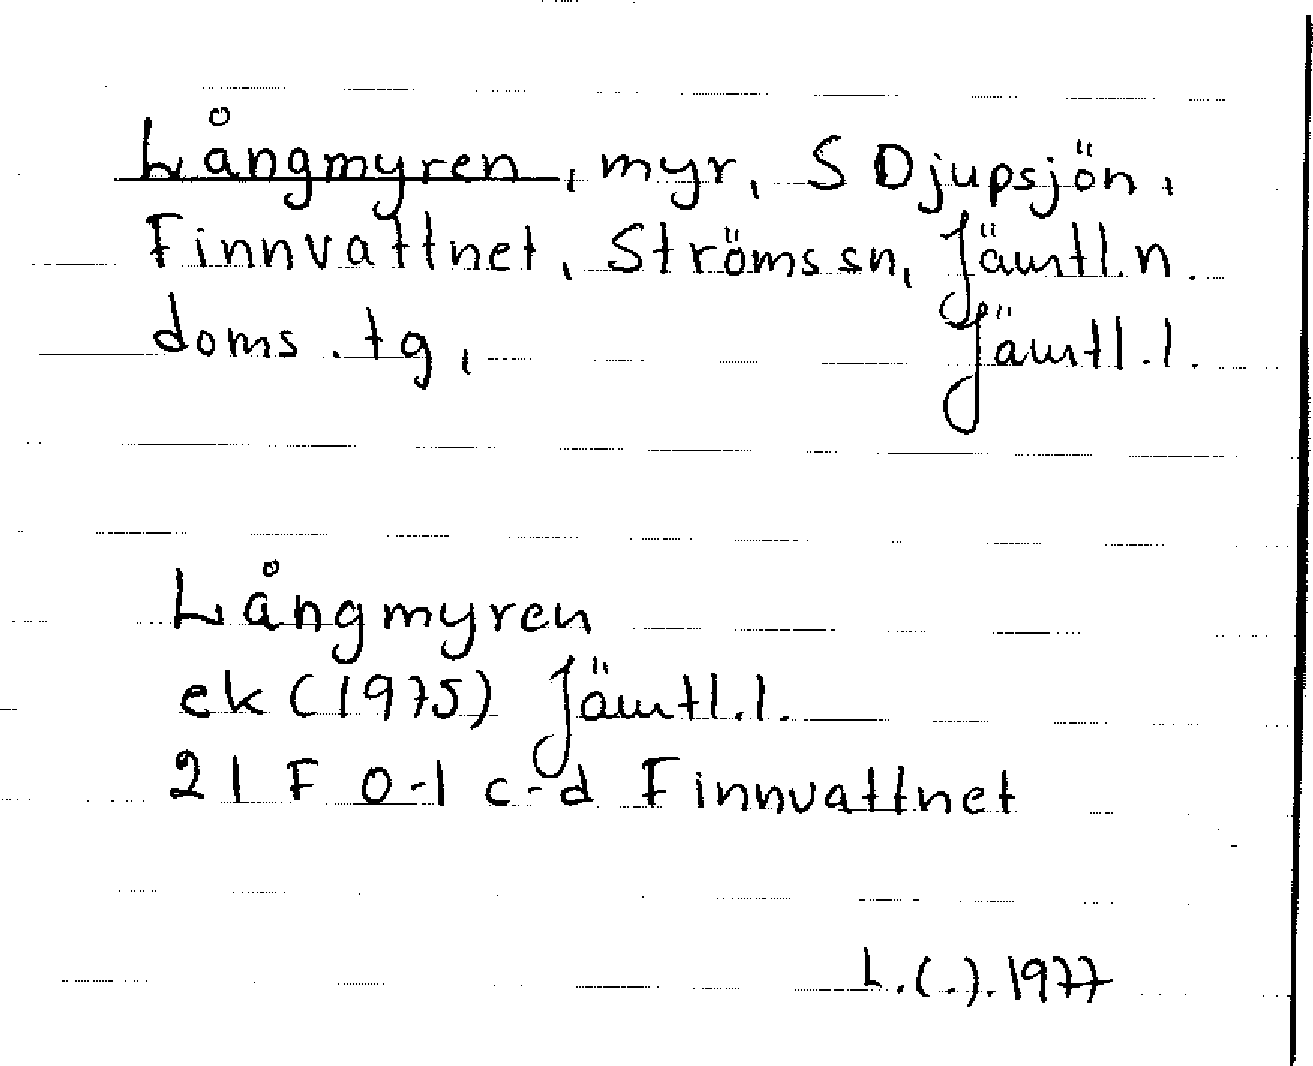 Långmyren, myr, S Djupsjön,
Finnvattnet, Ströms sn, Jämtl. n.
doms. tg, Jämtl. l.
Långmyren
ek (1975) Jämtl. l.
21 F 0-1 c-d Finnvattnet
L.(.). 1977